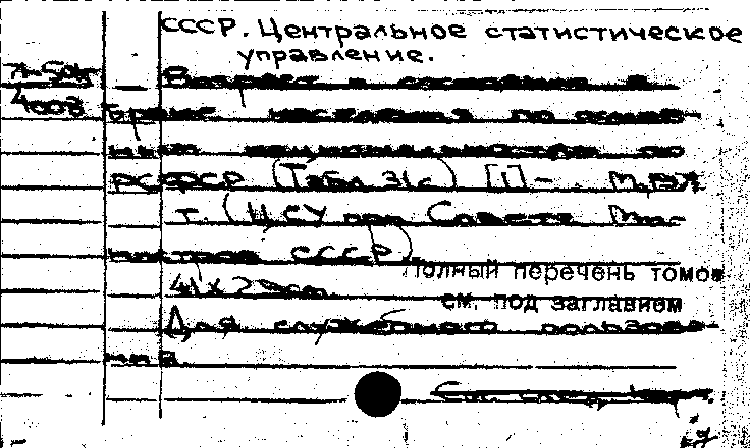 СССР. Центральное статистическое
управление.
Возраст и состояние в
браке населения по отдель-
ным национальностям по
РСФСР (Табл. 31с) [1]-. М,
т. (ЦСУ при Совете Ми-
нистров СССР).
Полный перечень томов
41х29см.
см. под заглавием
Для служебного пользова-
ния
См. след.